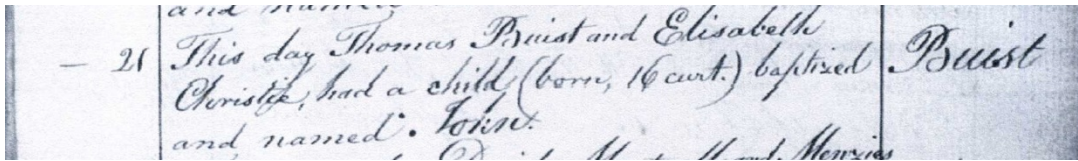 and named
— 21 This day Thomas Buist and Elisabeth Buist
Christie, had a child (born, 16 curt.) baptized
and named. John.
and Menzies